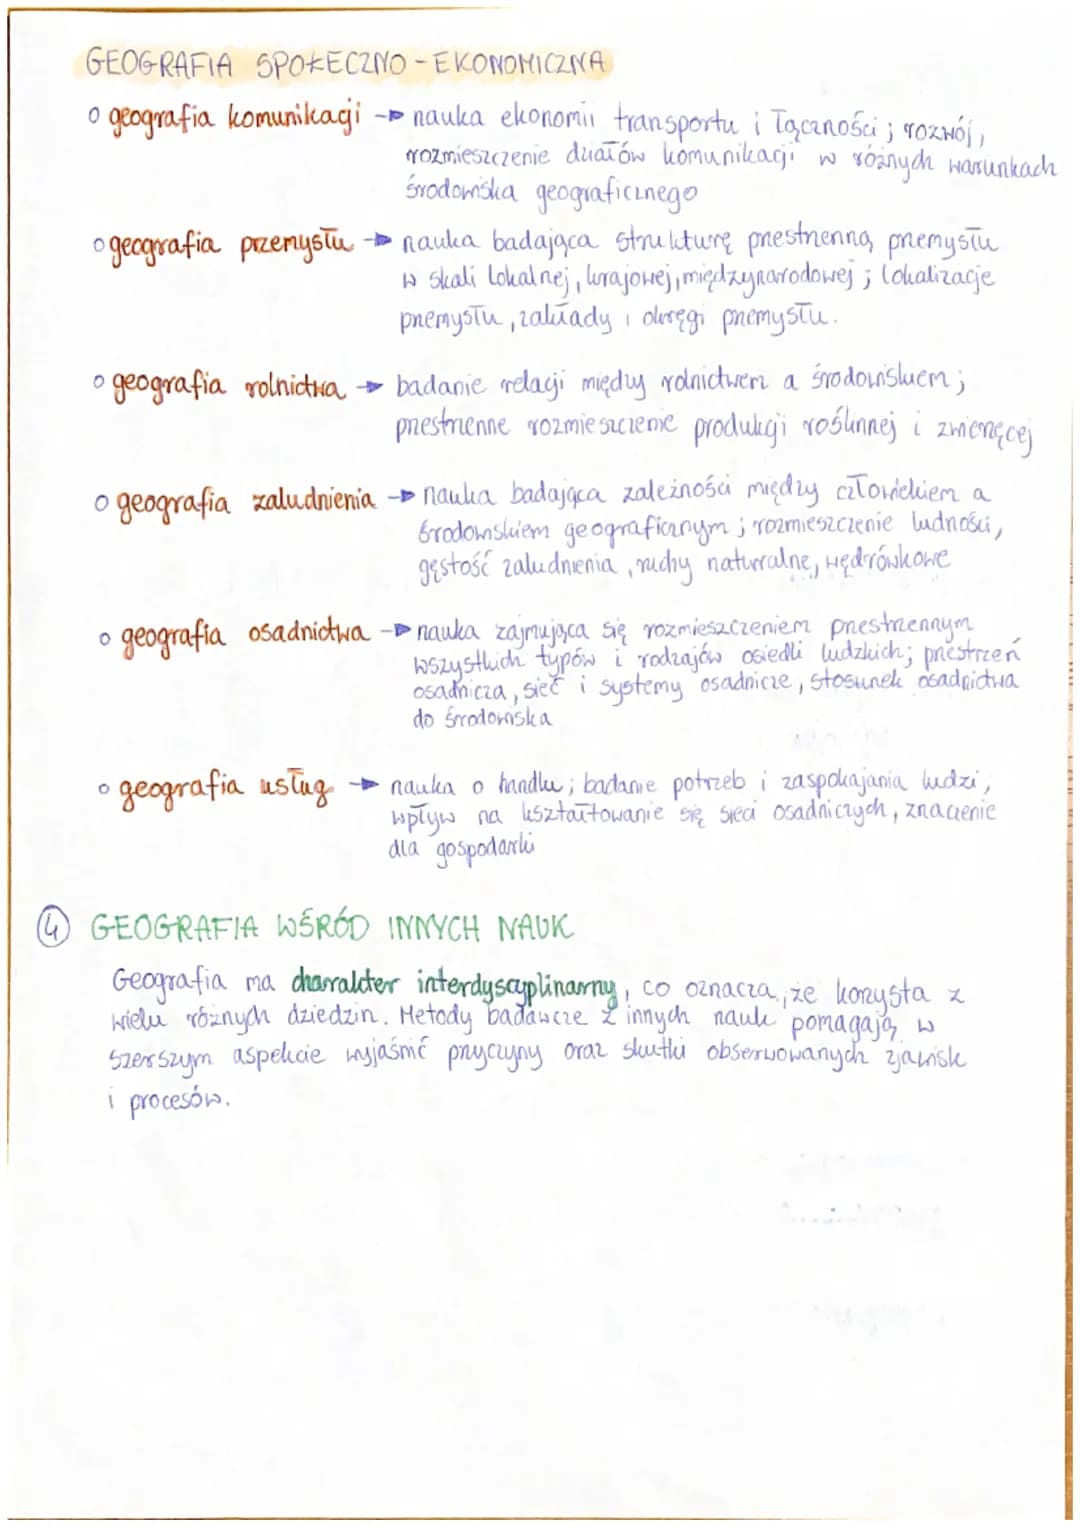 GEOGRAFIA SPOŁECZNO-EKONOMICZNA
o geografia komunikacji → nauka ekonomii transportu i łączności; rozwój,
rozmieszczenie działów komunikacji w różnych warunkach
środowiska geograficznego
o geografia przemysłu → nauka badająca strukturę przestrzenną przemysłu
w skali lokalnej, krajowej, międzynarodowej; lokalizacje
przemysłu, zakłady i okręgi przemysłu.
o geografia rolnictwa → badanie relacji między rolnictwem a środowiskiem;
przestrzenne rozmieszczenie produkcji roślinnej i zwierzęcej
o geografia zaludnienia → nauka badająca zależności między człowiekiem a
środowiskiem geograficznym; rozmieszczenie ludności,
gęstość zaludnienia, ruchy naturalne, wędrówkowe
o geografia osadnictwa → nauka zajmująca się rozmieszczeniem przestrzennym
wszystkich typów i rodzajów osiedli ludzkich; przestrzeń
osadnicza, sieć i systemy osadnicze, stosunek osadnictwa
do środowiska
o geografia usług → nauka o handlu; badanie potrzeb i zaspokajania ludzi;
wpływ na kształtowanie się sieci osadniczych, znaczenie
dla gospodarki
④ GEOGRAFIA WŚRÓD INNYCH NAUK
Geografia ma charakter interdyscyplinarny, co oznacza, że korzysta z
wielu różnych dziedzin. Metody badawcze z innych nauk pomagają w
szerszym aspekcie wyjaśnić przyczyny oraz skutki obserwowanych zjawisk
i procesów.